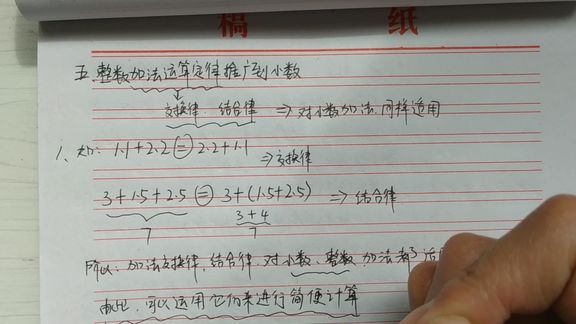 稿 纸
五.整数加法运算定律推广到小数
交换律.结合律 ⇒ 对小数加法同样适用
1、如: 1.1+2.2 = 2.2+1.1 ⇒ 交换律
3+1.5+2.5 = 3+(1.5+2.5) ⇒ 结合律
3+4
7 7
所以: 加法交换律,结合律,对小数、整数加法都适
由此,可以运用它们来进行简便计算